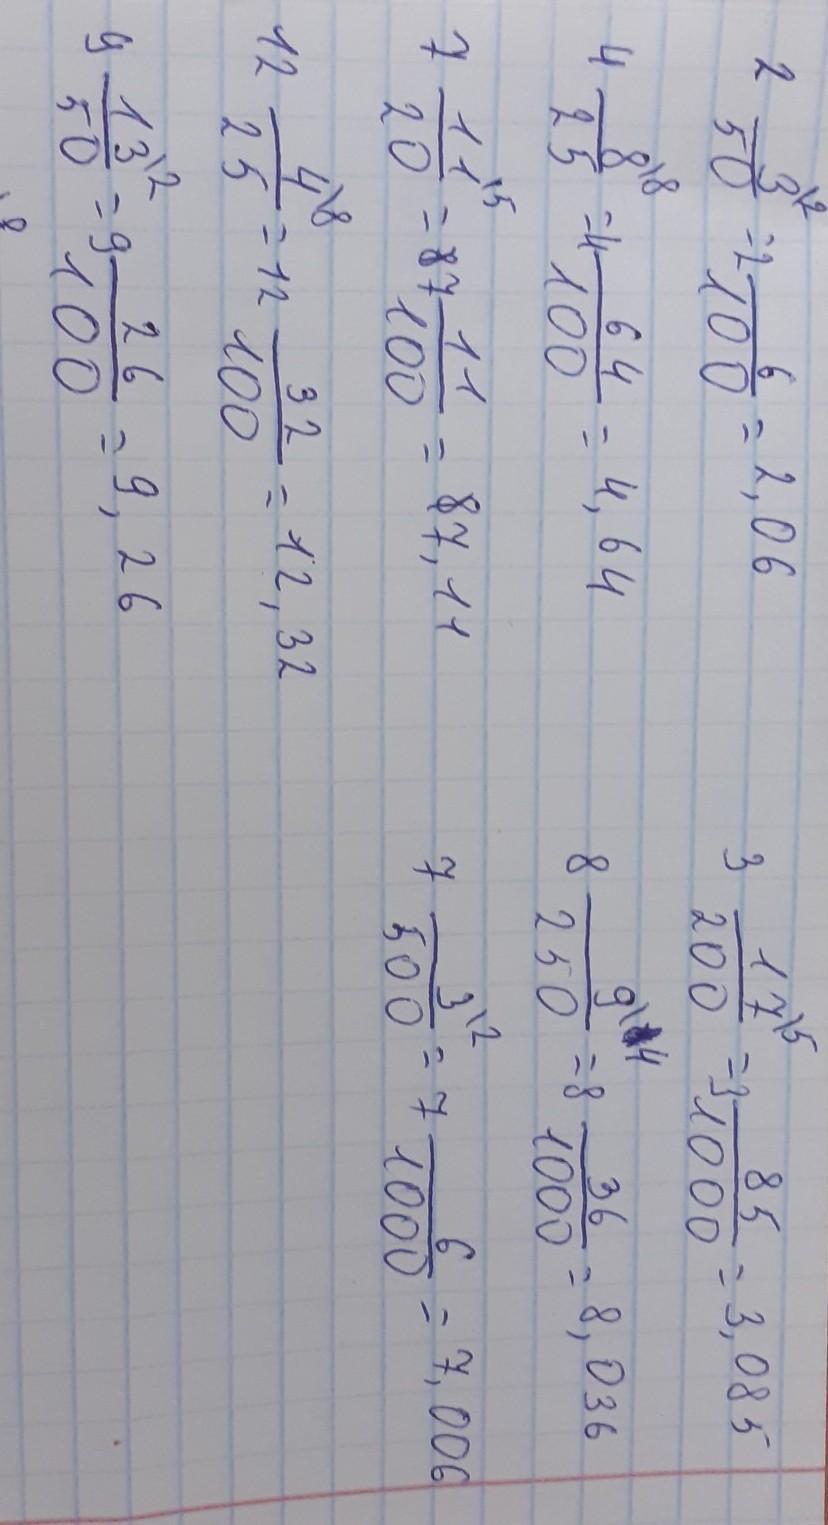 2 3\2/50 = 2 6/100 = 2,06
4 8\8/25 = 4 64/100 = 4,64
7 11\5/20 = 87 11/100 = 87,11
12 4\8/25 = 12 32/100 = 12,32
9 13\2/50 = 9 26/100 = 9,26
3 17\5/200 = 3 85/1000 = 3,085
8 9\4/250 = 8 36/1000 = 8,036
7 3\2/500 = 7 6/1000 = 7,006